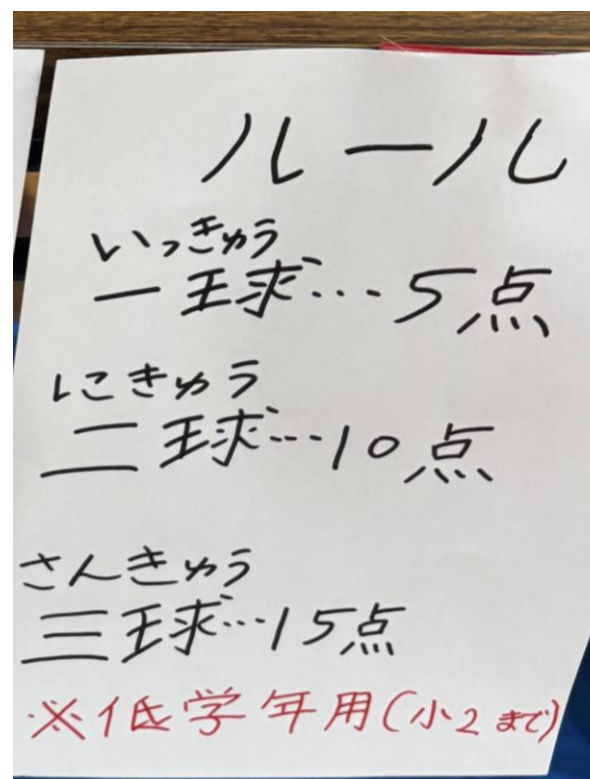 ルール
いっきゅう
一球…5点
にきゅう
二球…10点
さんきゅう
三球…15点
※低学年用(小2まで)